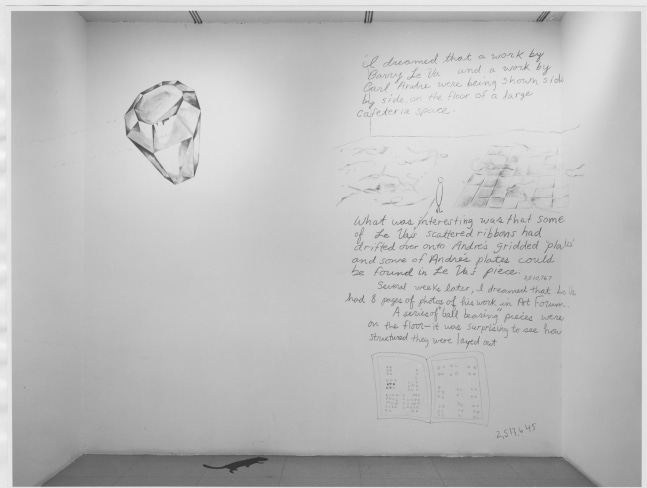 I dreamed that a work by
Barry Le Va and a work by
Carl Andre were being shown side
by side, on the floor of a large
cafeteria space.
What was interesting was that some
of Le Va's scattered ribbons had
drifted over onto Andre's gridded 'plates'
and some of Andre's plates could
be found in Le Va's piece.
Several weeks later, I dreamed that Le Va
had 8 pages of photos of his work in Art Forum.
A series of "ball bearing" pieces were
on the floor—it was surprising to see how
structured they were layed out
2,517,645